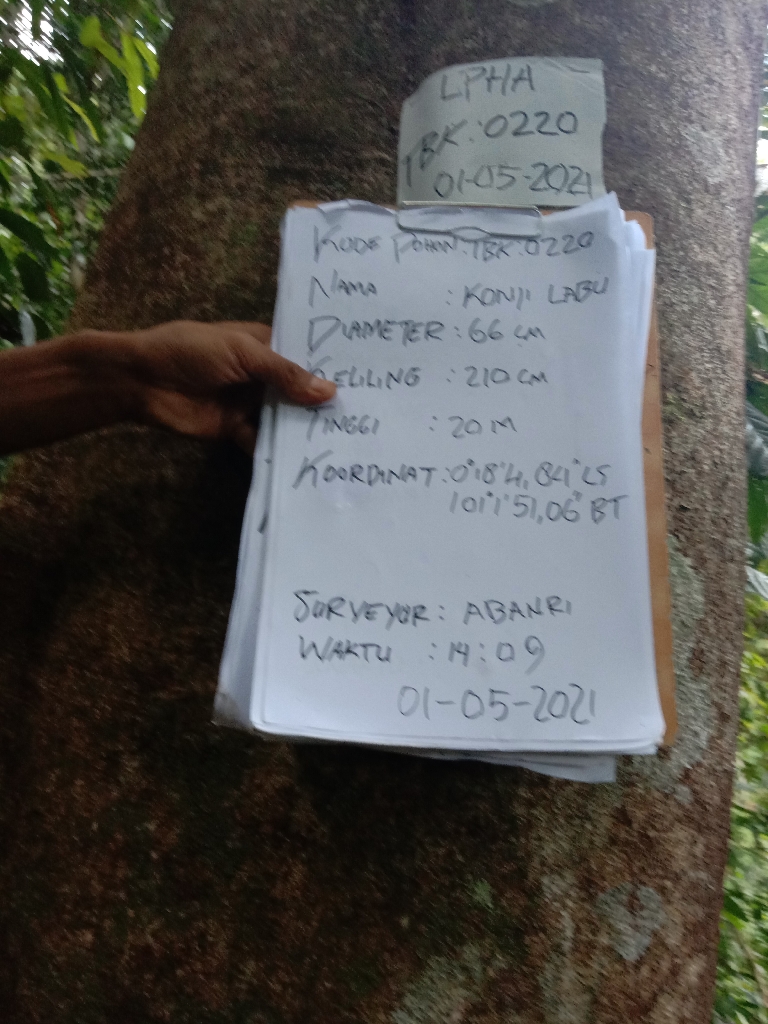 LPHA
TBK:0220
01-05-2021
KODE POHON:TBK:0220
NAMA : KONJI LABU
DIAMETER : 66 CM
KELILING : 210 CM
TINGGI : 20 M
KOORDINAT:0°18'4,84" LS
101°1'51,06" BT
SURVEYOR : ABANRI
WAKTU : 14:09
01-05-2021